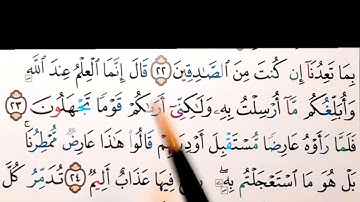 بِمَا تَعِدُنَآ إِن كُنتَ مِنَ ٱلصَّـٰدِقِينَ ٢٢ قَالَ إِنَّمَا ٱلْعِلْمُ عِندَ ٱللَّهِ
وَأُبَلِّغُكُم مَّآ أُرْسِلْتُ بِهِۦ وَلَـٰكِنِّىٓ أَرَىٰكُمْ قَوْمًا تَجْهَلُونَ ٢٣
فَلَمَّا رَأَوْهُ عَارِضًا مُّسْتَقْبِلَ قَالُوا۟ هَـٰذَا عَارِضٌ مُّمْطِرُنَا ۚ
بَلْ هُوَ مَا ٱسْتَعْجَلْتُم بِهِۦ ۖ فِيهَا عَذَابٌ أَلِيمٌ ٢٤ تُدَمِّرُ كُلَّ